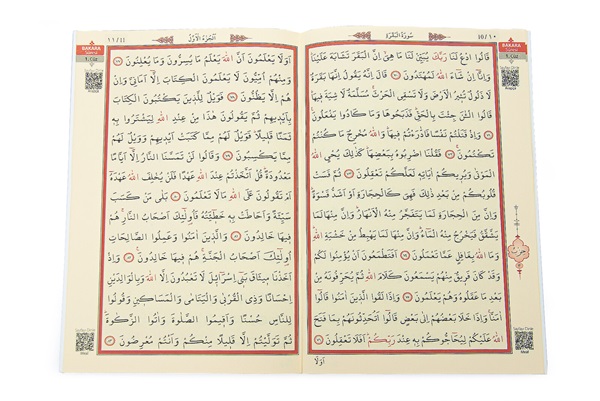 سُورَةُ الْبَقَرَةِ
١٠/10
BAKARA
قَالُوا ادْعُ لَنَا رَبَّكَ يُبَيِّنْ لَنَا مَا هِيَ اِنَّ الْبَقَرَ تَشَابَهَ عَلَيْنَا
وَاِنَّا اِنْ شَاءَ اللهُ لَمُهْتَدُونَ ﴿٧٠﴾ قَالَ اِنَّهُ يَقُولُ اِنَّهَا بَقَرَةٌ
لَا ذَلُولٌ تُثِيرُ الْاَرْضَ وَلَا تَسْقِي الْحَرْثَ مُسَلَّمَةٌ لَا شِيَةَ فِيهَا
قَالُوا الْـٰٔنَ جِئْتَ بِالْحَقِّ فَذَبَحُوهَا وَمَا كَادُوا يَفْعَلُونَ ﴿٧١﴾
وَاِذْ قَتَلْتُمْ نَفْسًا فَادَّارَأْتُمْ فِيهَا وَاللهُ مُخْرِجٌ مَا كُنْتُمْ
تَكْتُمُونَ ﴿٧٢﴾ فَقُلْنَا اضْرِبُوهُ بِبَعْضِهَا كَذٰلِكَ يُحْيِي اللهُ
الْمَوْتٰى وَيُرِيكُمْ اٰيَاتِهِ لَعَلَّكُمْ تَعْقِلُونَ ﴿٧٣﴾ ثُمَّ قَسَتْ
قُلُوبُكُمْ مِنْ بَعْدِ ذٰلِكَ فَهِيَ كَالْحِجَارَةِ اَوْ اَشَدُّ قَسْوَةً
وَاِنَّ مِنَ الْحِجَارَةِ لَمَا يَتَفَجَّرُ مِنْهُ الْاَنْهَارُ وَاِنَّ مِنْهَا لَمَا
يَشَّقَّقُ فَيَخْرُجُ مِنْهُ الْمَاءُ وَاِنَّ مِنْهَا لَمَا يَهْبِطُ مِنْ خَشْيَةِ اللهِ
وَمَا اللهُ بِغَافِلٍ عَمَّا تَعْمَلُونَ ﴿٧٤﴾ اَفَتَطْمَعُونَ اَنْ يُؤْمِنُوا لَكُمْ
وَقَدْ كَانَ فَرِيقٌ مِنْهُمْ يَسْمَعُونَ كَلَامَ اللهِ ثُمَّ يُحَرِّفُونَهُ مِنْ
بَعْدِ مَا عَقَلُوهُ وَهُمْ يَعْلَمُونَ ﴿٧٥﴾ وَاِذَا لَقُوا الَّذِينَ اٰمَنُوا قَالُوا
اٰمَنَّا وَاِذَا خَلَا بَعْضُهُمْ اِلٰى بَعْضٍ قَالُوا اَتُحَدِّثُونَهُمْ بِمَا فَتَحَ
اللهُ عَلَيْكُمْ لِيُحَاجُّوكُمْ بِهِ عِنْدَ رَبِّكُمْ اَفَلَا تَعْقِلُونَ ﴿٧٦﴾
اَوَلَا
اَلْجُزْءُ الْاَوَّلُ
١١/11
BAKARA
اَوَلَا يَعْلَمُونَ اَنَّ اللهَ يَعْلَمُ مَا يُسِرُّونَ وَمَا يُعْلِنُونَ ﴿٧٧﴾
وَمِنْهُمْ اُمِّيُّونَ لَا يَعْلَمُونَ الْكِتَابَ اِلَّا اَمَانِيَّ وَاِنْ
هُمْ اِلَّا يَظُنُّونَ ﴿٧٨﴾ فَوَيْلٌ لِلَّذِينَ يَكْتُبُونَ الْكِتَابَ
بِاَيْدِيهِمْ ثُمَّ يَقُولُونَ هٰذَا مِنْ عِنْدِ اللهِ لِيَشْتَرُوا بِهِ
ثَمَنًا قَلِيلًا فَوَيْلٌ لَهُمْ مِمَّا كَتَبَتْ اَيْدِيهِمْ وَوَيْلٌ لَهُمْ
مِمَّا يَكْسِبُونَ ﴿٧٩﴾ وَقَالُوا لَنْ تَمَسَّنَا النَّارُ اِلَّا اَيَّامًا
مَعْدُودَةً قُلْ اَتَّخَذْتُمْ عِنْدَ اللهِ عَهْدًا فَلَنْ يُخْلِفَ اللهُ عَهْدَهُ
اَمْ تَقُولُونَ عَلَى اللهِ مَا لَا تَعْلَمُونَ ﴿٨٠﴾ بَلٰى مَنْ كَسَبَ
سَيِّئَةً وَاَحَاطَتْ بِهِ خَطِيئَتُهُ فَاُولٰئِكَ اَصْحَابُ النَّارِ هُمْ
فِيهَا خَالِدُونَ ﴿٨١﴾ وَالَّذِينَ اٰمَنُوا وَعَمِلُوا الصَّالِحَاتِ
اُولٰئِكَ اَصْحَابُ الْجَنَّةِ هُمْ فِيهَا خَالِدُونَ ﴿٨٢﴾ وَاِذْ
اَخَذْنَا مِيثَاقَ بَنِي اِسْرَائِيلَ لَا تَعْبُدُونَ اِلَّا اللهَ وَبِالْوَالِدَيْنِ
اِحْسَانًا وَذِي الْقُرْبٰى وَالْيَتَامٰى وَالْمَسَاكِينِ وَقُولُوا
لِلنَّاسِ حُسْنًا وَاَقِيمُوا الصَّلٰوةَ وَاٰتُوا الزَّكٰوةَ
ثُمَّ تَوَلَّيْتُمْ اِلَّا قَلِيلًا مِنْكُمْ وَاَنْتُمْ مُعْرِضُونَ ﴿٨٣﴾